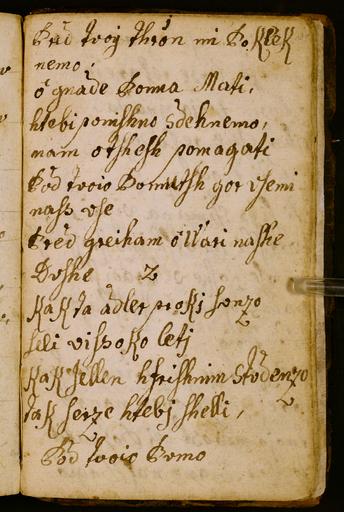 Pred tvoj thrön mi Po.klek
nemo,
o gnäde Ponna Mati,
htebi ponishno sdehnemo,
nam otshesh pomagati
Pod tvoio Pomutsh gor vsemi
nass vse
Pred greiham ollvari nashe
Dushe 2
KaKta ädler proti sonzo
seli vissoko letj
KaK Jellen hfrishnim Studenzo
taK serze htebj shelli,
Pod tvoio Pomo